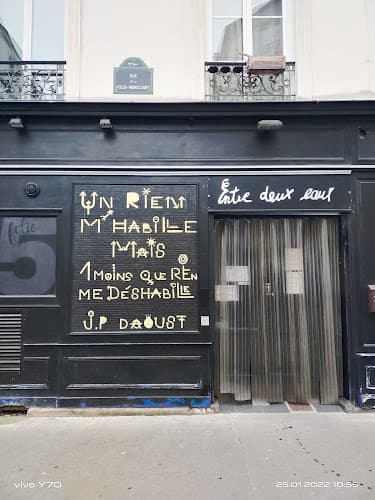 RUE
DE LA
FOLIE-MÉRICOURT
Entre deux eaux
UN RIEN
M'HABILLE
MAIS
1 MOINS QUE RIEN
ME DÉSHABILLE
J.P DAOUST
folie
5
vivo Y70
25.01.2022 10:55